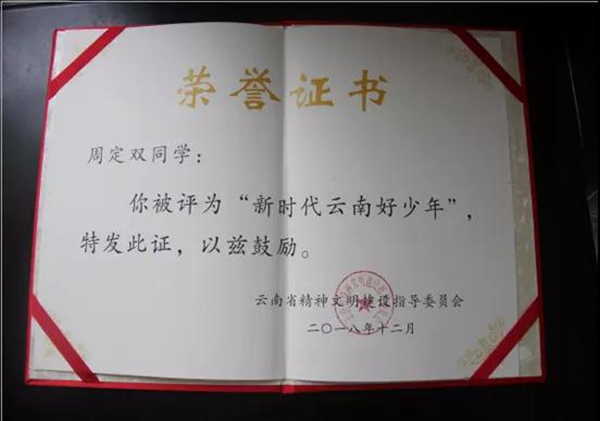 荣誉证书
周定双同学：
你被评为“新时代云南好少年”，
特发此证，以兹鼓励。
云南省精神文明建设指导委员会
二〇一八年十二月